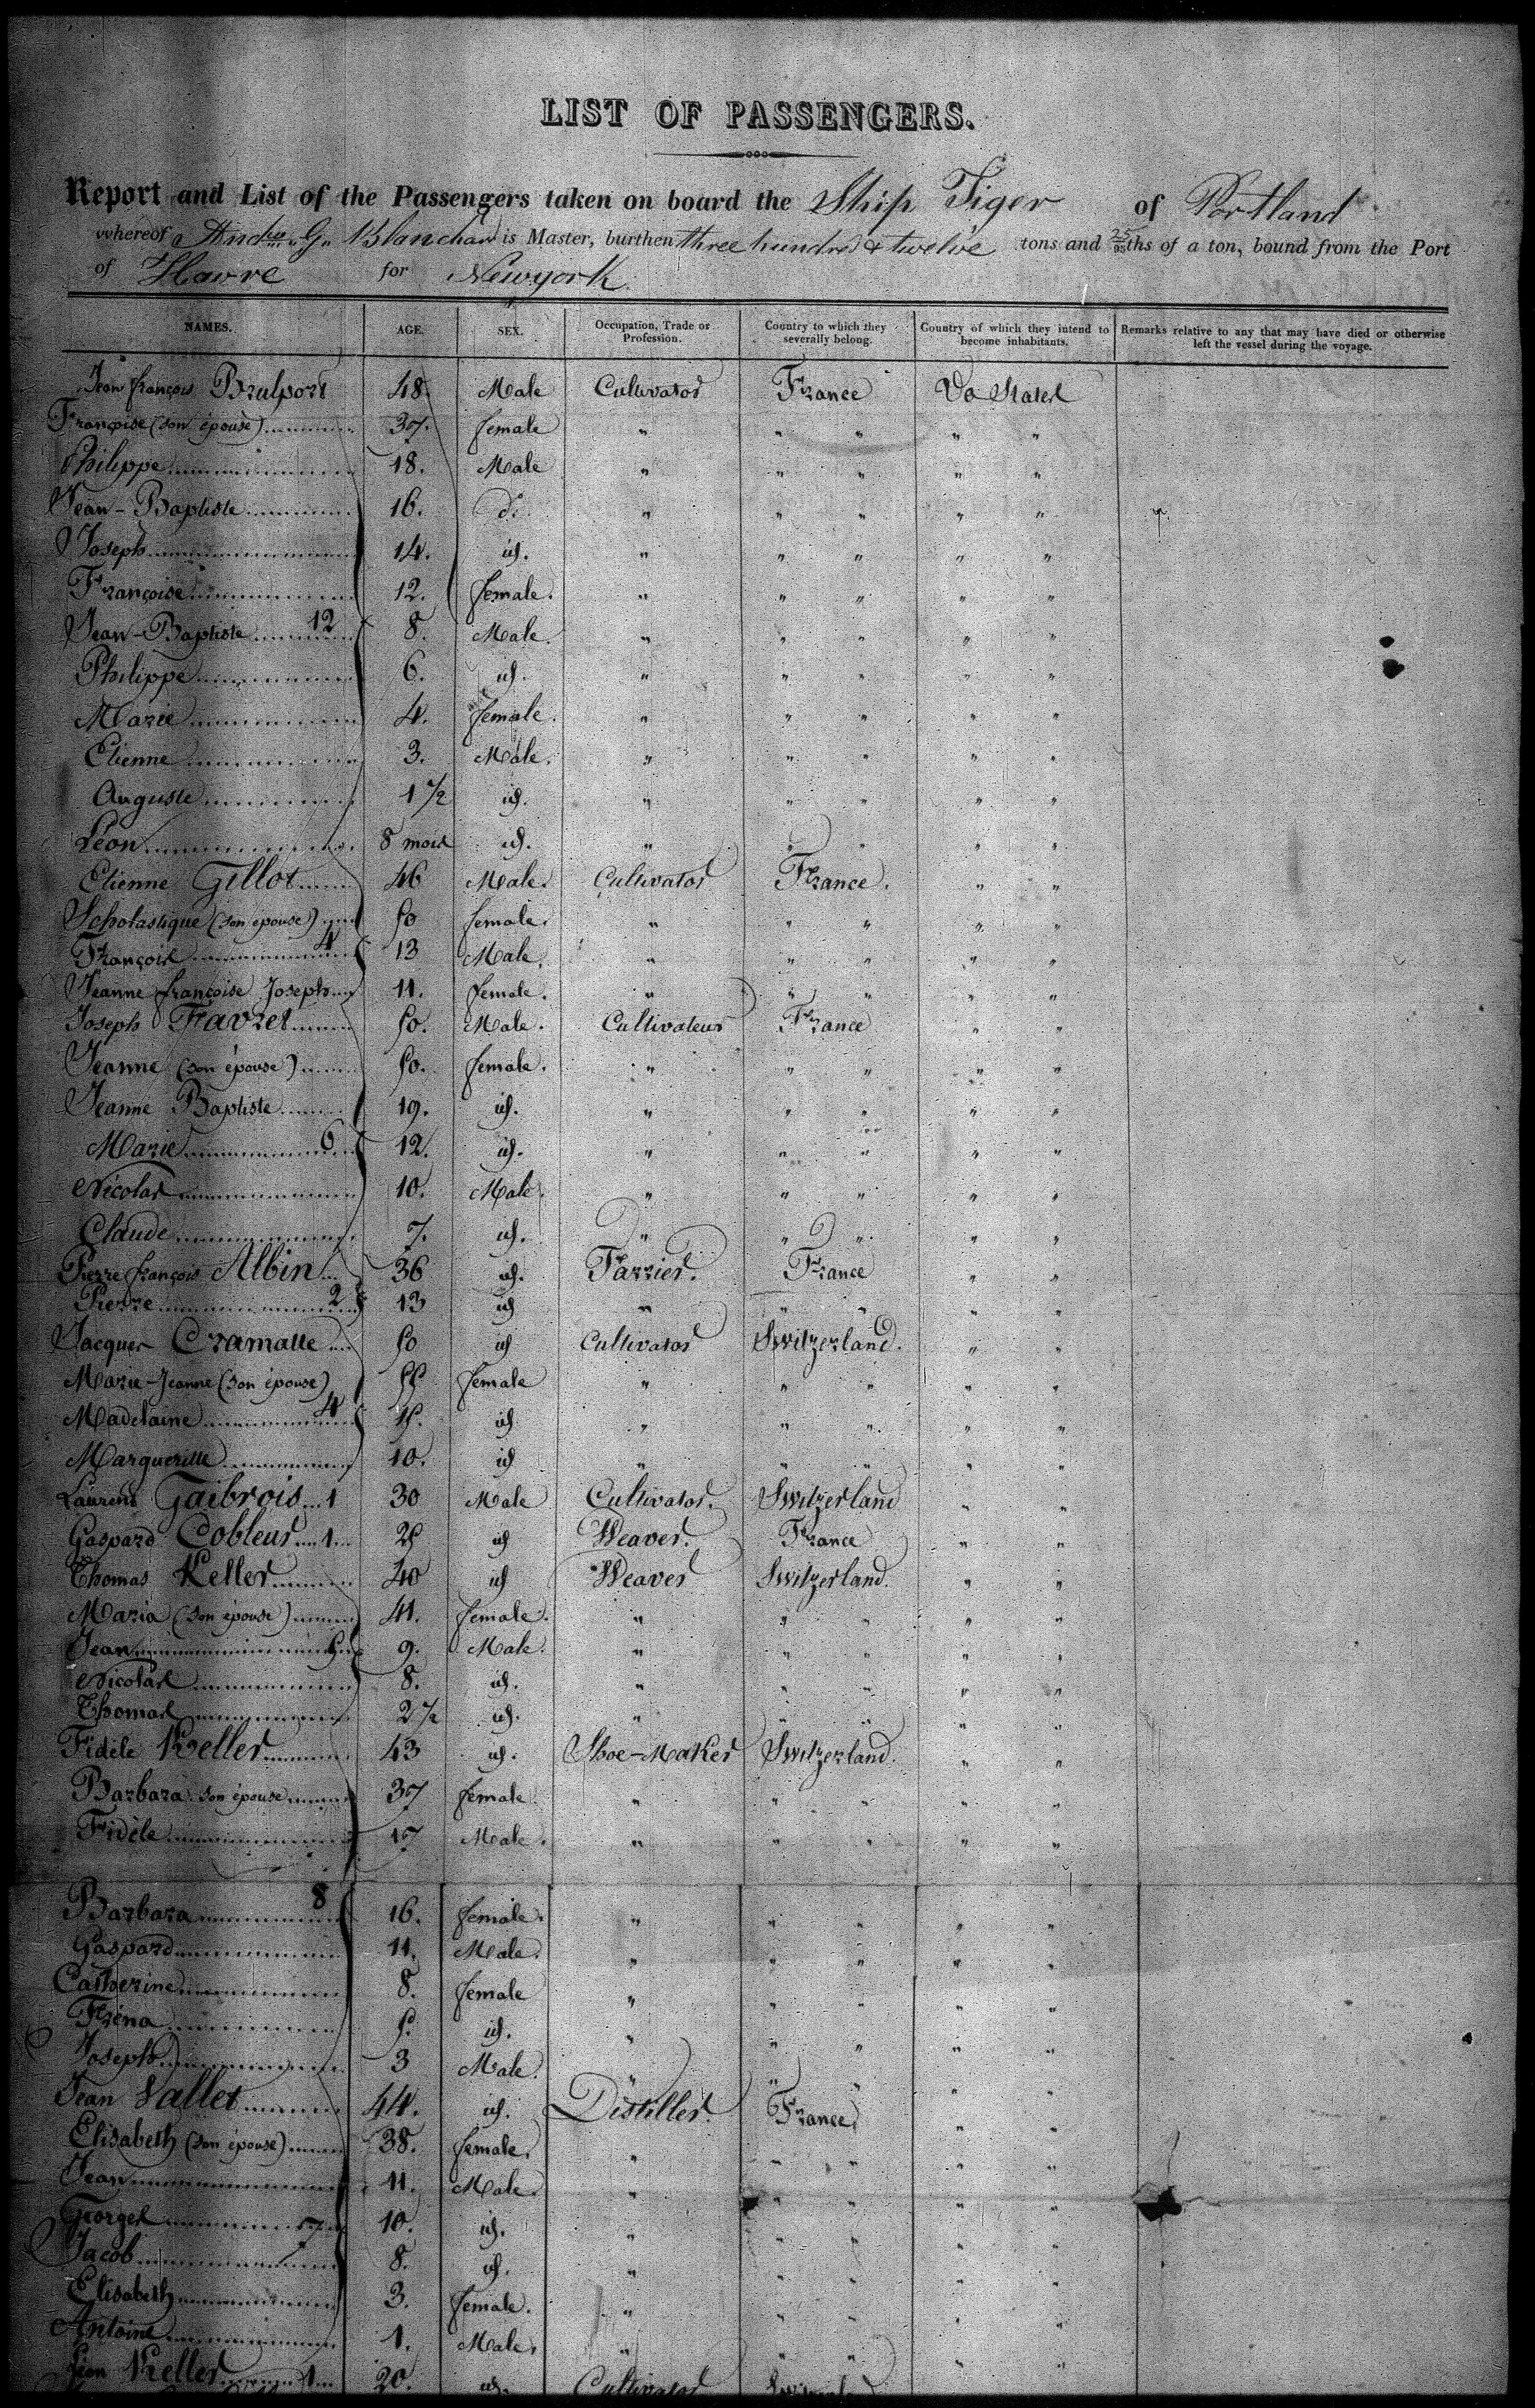 LIST OF PASSENGERS.
Report and List of the Passengers taken on board the Ship Tiger of Portland
whereof Andw. G. Blanchard is Master, burthen three hundred & twelve tons and 25/95ths of a ton, bound from the Port
of Havre for Newyork
NAMES. AGE. SEX. Occupation, Trade or Profession. Country to which they severally belong. Country of which they intend to become inhabitants. Remarks relative to any that may have died or otherwise left the vessel during the voyage.
Jean françois Brulport 48 Male Cultivator France Va States
Françoise (son épouse) 37. female " " " " "
Philippe 18. Male " " " " "
Jean-Baptiste 16. do. " " " " "
Joseph 14. id. " " " " "
Françoise 12. female. " " " " "
Jean-Baptiste 12 8. Male. " " " " "
Philippe 6. id. " " " " "
Marie 4. female. " " " " "
Etienne 3. Male. " " " " "
Auguste 1 1/2 id. " " " " "
Léon 8 mois id. " " " " "
Etienne Gillot 46 Male. Cultivator France. " "
Scholastique (son épouse) 50 female. " " " " "
François 4 13 Male. " " " " "
Jeanne françoise Joseph 11. female. " " " " "
Joseph Favret 50. Male. Cultivateur France " "
Jeanne (son épouse) 50. female. " " " " "
Jeanne Baptiste 19. id. " " " " "
Marie 6 12. id. " " " " "
Nicolas 10. Male. " " " " "
Claude 7. id. " " " " "
Pierre françois Albin 36 id. Farrier. France " "
Pierre 2 13 id " " " " "
Jacques Cramatte 50 id Cultivator Switzerland. " "
Marie-Jeanne (son épouse) 55 female " " " " "
Madelaine 4 15. id " " " " "
Marguerille 10. id " " " " "
Laurent Gaibrois 1 30 Male Cultivator. Switzerland " "
Gaspard Cobleur 1 25 id Weaver. France " "
Thomas Keller 40 id Weaver Switzerland. " "
Maria (son épouse) 41. female. " " " " "
Jean 5 9. Male. " " " " "
Nicolas 8. id. " " " " "
Thomas 2 1/2 id. " " " " "
Fidèle Keller 43 id. Shoe-Maker Switzerland. " "
Barbara son épouse 37 female. " " " " "
Fidèle 17 Male. " " " " "
Barbara 8 16. female. " " " " "
Gaspard 11. Male. " " " " "
Catherine 8. female " " " " "
Fréna 5. id. " " " " "
Joseph 3 Male. " " " " "
Jean Vallet 44. id. Distiller. France. " "
Elisabeth (son épouse) 38. female. " " " " "
Jean 11. Male. " " " " "
Georges 7 10. id. " " " " "
Jacob 8. id. " " " " "
Elisabeth 3. female. " " " " "
Antoine 1. Male. " " " " "
Jean Keller 1 20. id. Cultivator